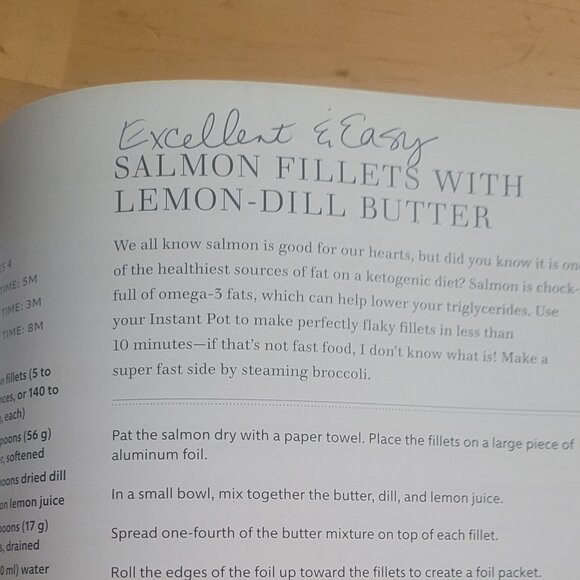 Excellent & Easy
SALMON FILLETS WITH
LEMON-DILL BUTTER
We all know salmon is good for our hearts, but did you know it is one
of the healthiest sources of fat on a ketogenic diet? Salmon is chock-
full of omega-3 fats, which can help lower your triglycerides. Use
your Instant Pot to make perfectly flaky fillets in less than
10 minutes—if that's not fast food, I don't know what is! Make a
super fast side by steaming broccoli.
4
TIME: 5M
TIME: 3M
TIME: 8M
fillets (5 to
or 140 to
each)
(56 g)
softened
dried dill
lemon juice
(17 g)
drained
ml) water
Pat the salmon dry with a paper towel. Place the fillets on a large piece of
aluminum foil.
In a small bowl, mix together the butter, dill, and lemon juice.
Spread one-fourth of the butter mixture on top of each fillet.
Roll the edges of the foil up toward the fillets to create a foil packet.